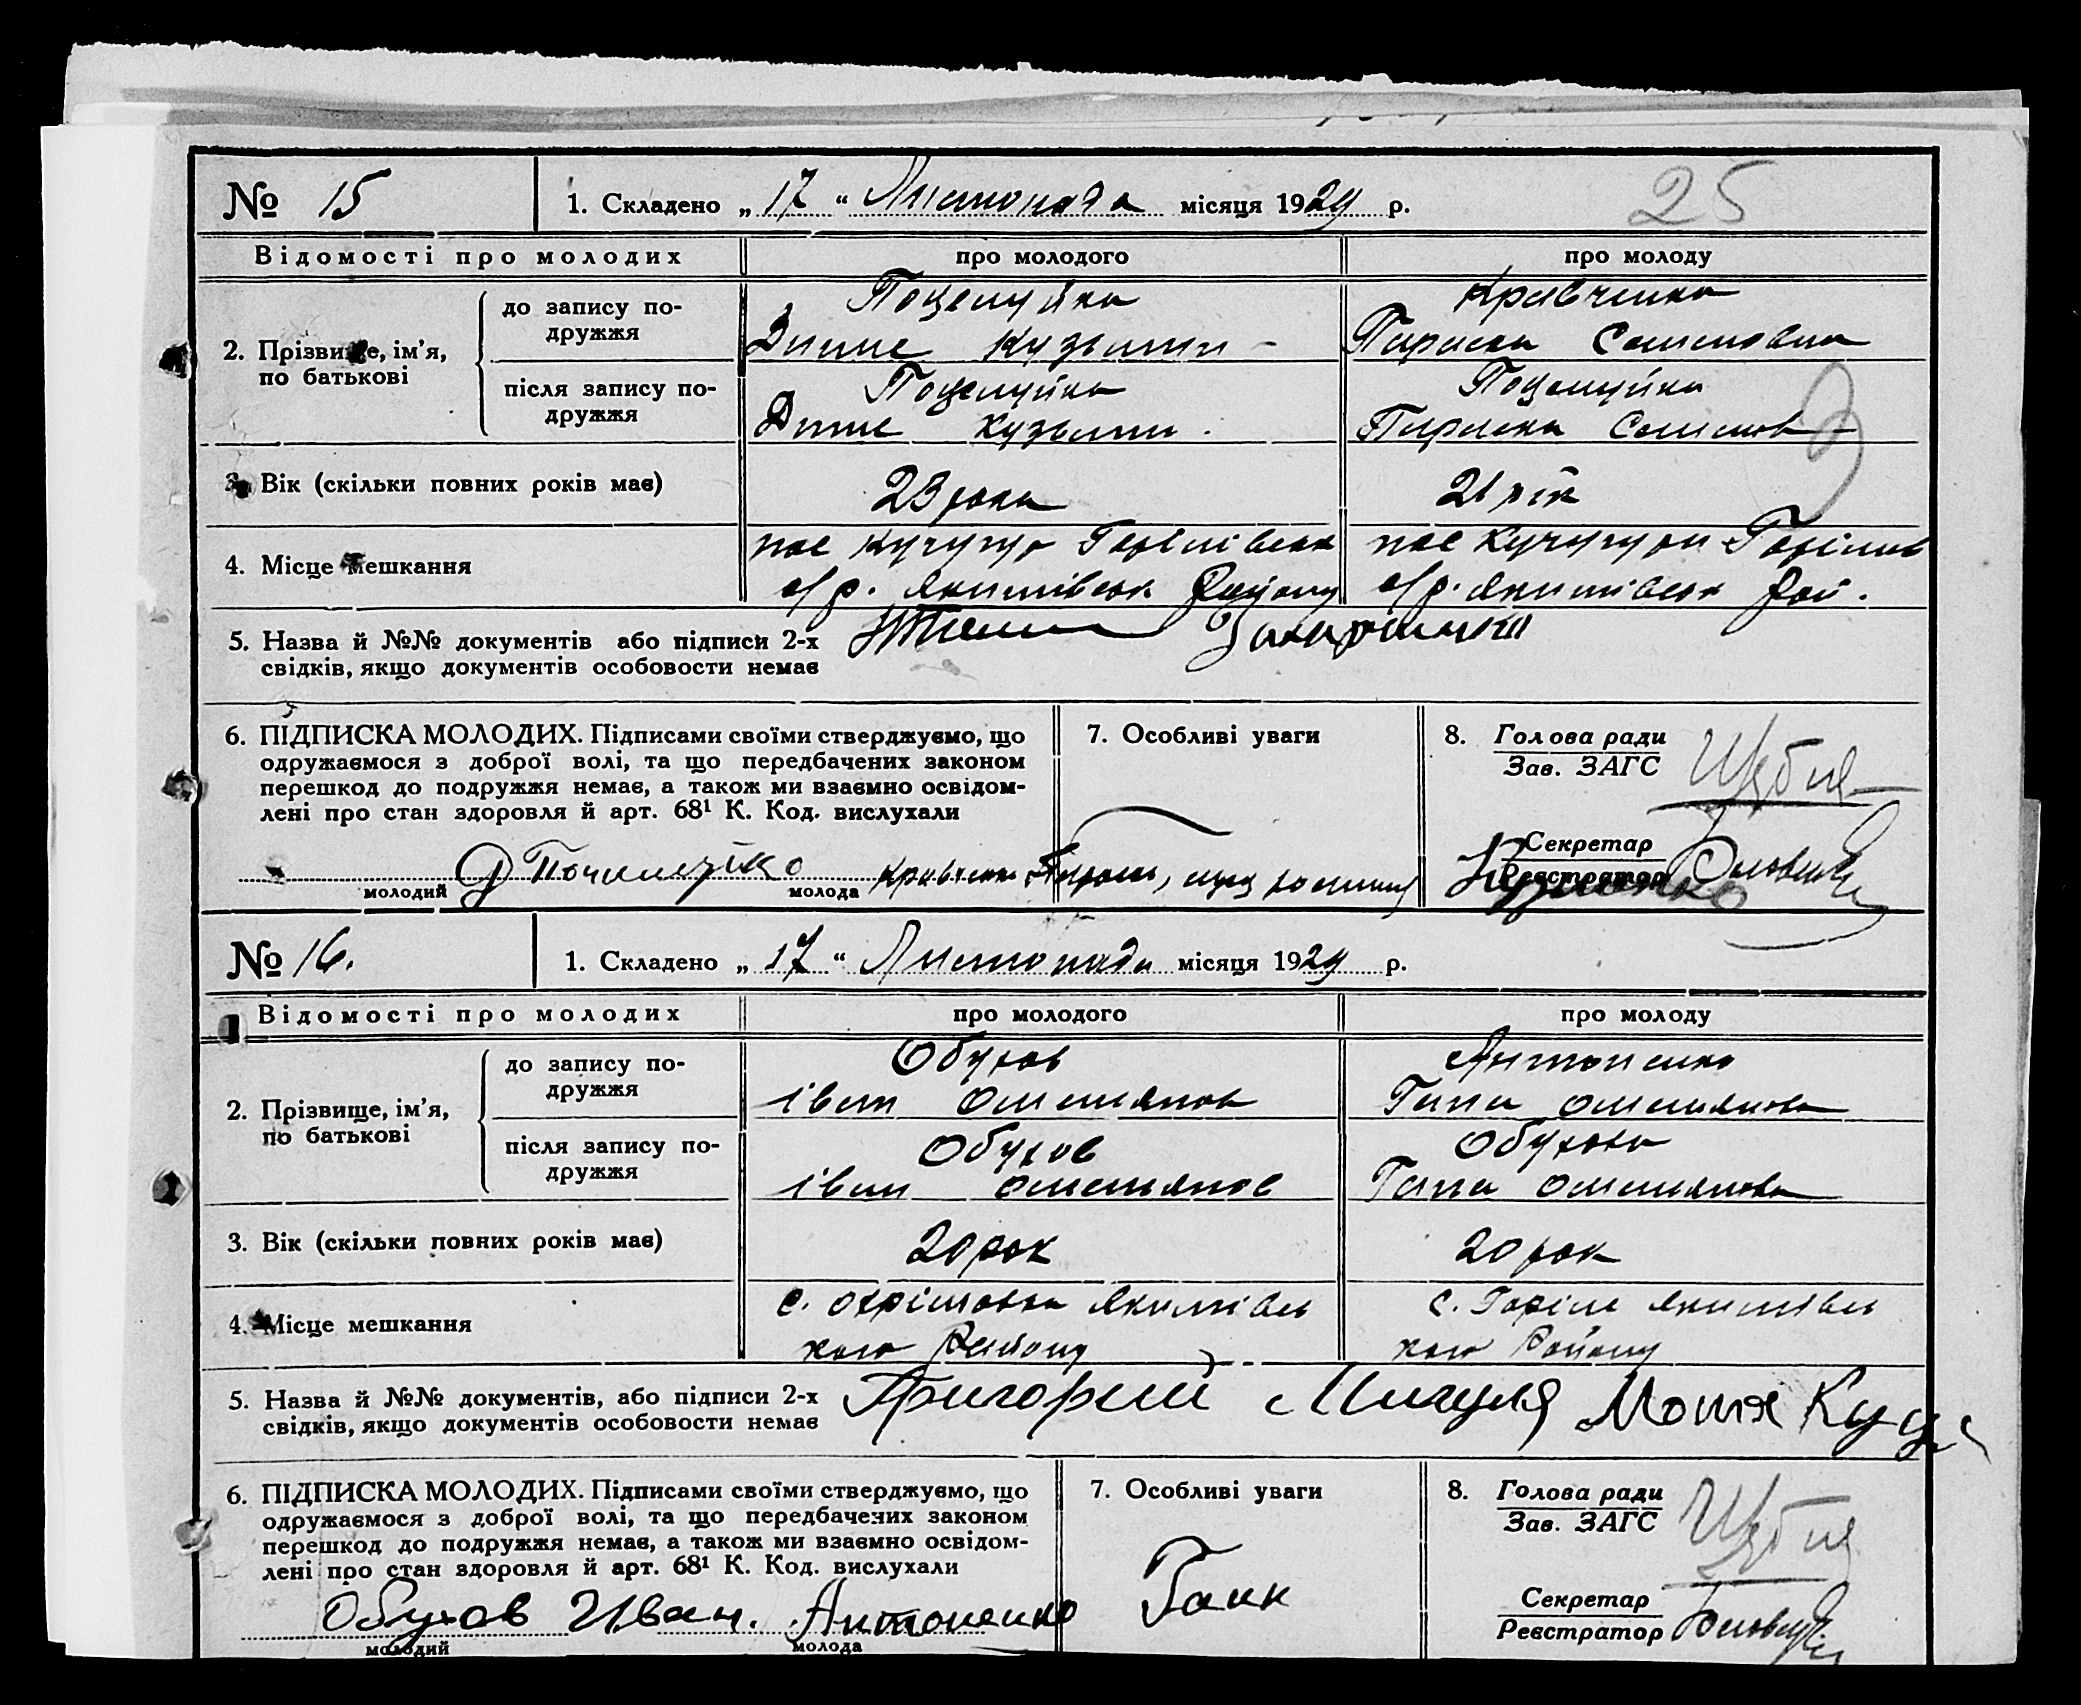 25
№ 15
1. Складено „17“ Листопада місяця 1929 р.
Відомості про молодих
про молодого
про молоду
2. Прізвище, ім’я, по батькові
до запису подружжя
Поцелуйко
Кравченко
Кузьмич
Параска Семеновна
після запису подружжя
Поцелуйко
Поцелуйко
Параска Семенов
3. Вік (скільки повних років має)
23 роки
21 рік
4. Місце мешкання
пос Кучугур Горілівськ
пос Кучугури Горілів
с/р. Якимівськ Району
с/р. Якимівськ Рай.
5. Назва й №№ документів або підписи 2-х
свідків, якщо документів особовости немає
6. ПІДПИСКА МОЛОДИХ. Підписами своїми стверджуємо, що
одружаємося з доброї волі, та що передбачених законом
перешкод до подружжя немає, а також ми взаємно освідом-
лені про стан здоровля й арт. 68¹ К. Код. вислухали
7. Особливі уваги
8. Голова ради
Зав. ЗАГС
Секретар
Реєстратор
молодий
молода
№ 16.
1. Складено „17“ Листопада місяця 1929 р.
Відомості про молодих
про молодого
про молоду
2. Прізвище, ім’я, по батькові
до запису подружжя
Обухов
Антоненко
Іван Омелянов
Гапа Омелянова
після запису подружжя
Обухов
Обухова
Іван Омелянов
Гапа Омелянова
3. Вік (скільки повних років має)
20 рок
20 рок
4. Місце мешкання
с. Охрімовка Якимівсь
с. Горіле Якимівсь
кого Району
кого Району
5. Назва й №№ документів, або підписи 2-х
свідків, якщо документів особовости немає
Григорий Мигуля Мотя Куц
6. ПІДПИСКА МОЛОДИХ. Підписами своїми стверджуємо, що
одружаємося з доброї волі, та що передбачених законом
перешкод до подружжя немає, а також ми взаємно освідом-
лені про стан здоровля й арт. 68¹ К. Код. вислухали
7. Особливі уваги
8. Голова ради
Зав. ЗАГС
Секретар
Реєстратор
Обухов Иван. Антоненко
молодий
молода